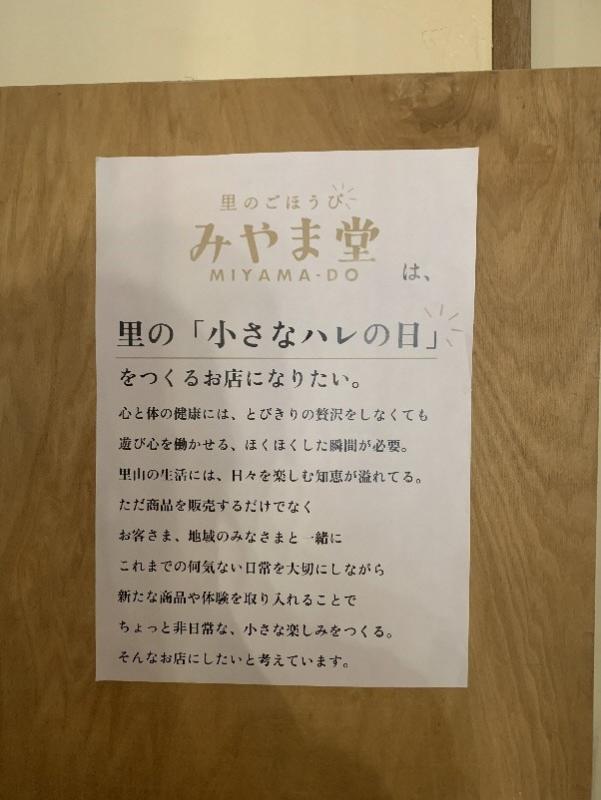 里のごほうび
みやま堂
MIYAMA-DO
は、
里の「小さなハレの日」
をつくるお店になりたい。
心と体の健康には、とびきりの贅沢をしなくても
遊び心を働かせる、ほくほくした瞬間が必要。
里山の生活には、日々を楽しむ知恵が溢れてる。
ただ商品を販売するだけでなく
お客さま、地域のみなさまと一緒に
これまでの何気ない日常を大切にしながら
新たな商品や体験を取り入れることで
ちょっと非日常な、小さな楽しみをつくる。
そんなお店にしたいと考えています。